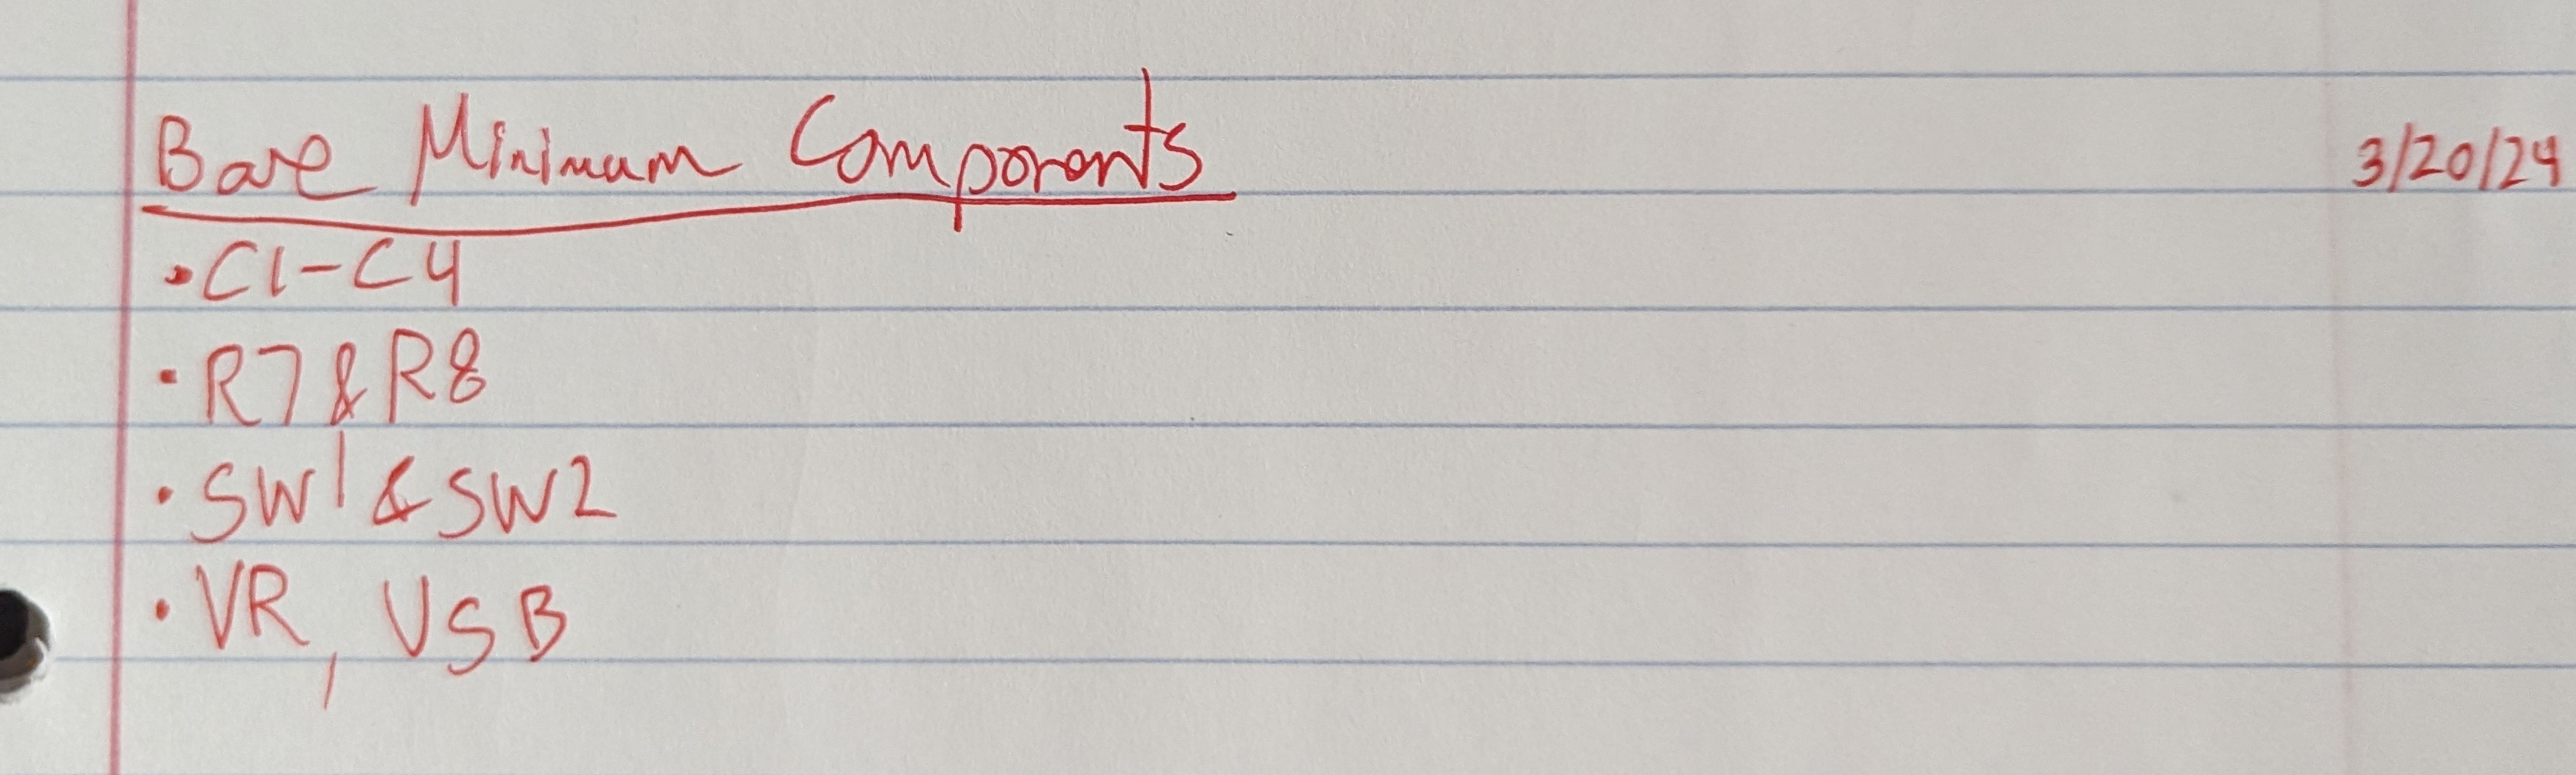 Bare Minimum Components 3/20/24
• C1-C4
• R7 & R8
• SW1 & SW2
• VR, USB